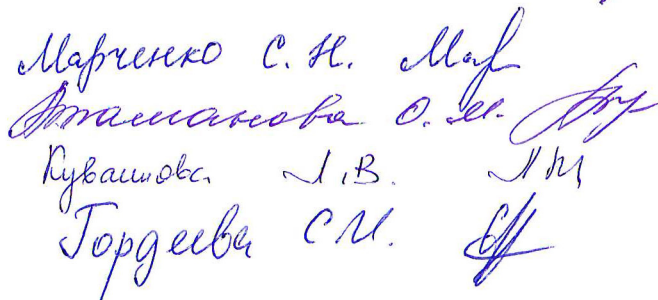 Марченко С. Н. Мар
Атаманова О. М.
Кувашова Л. В.
Гордеева С. И.